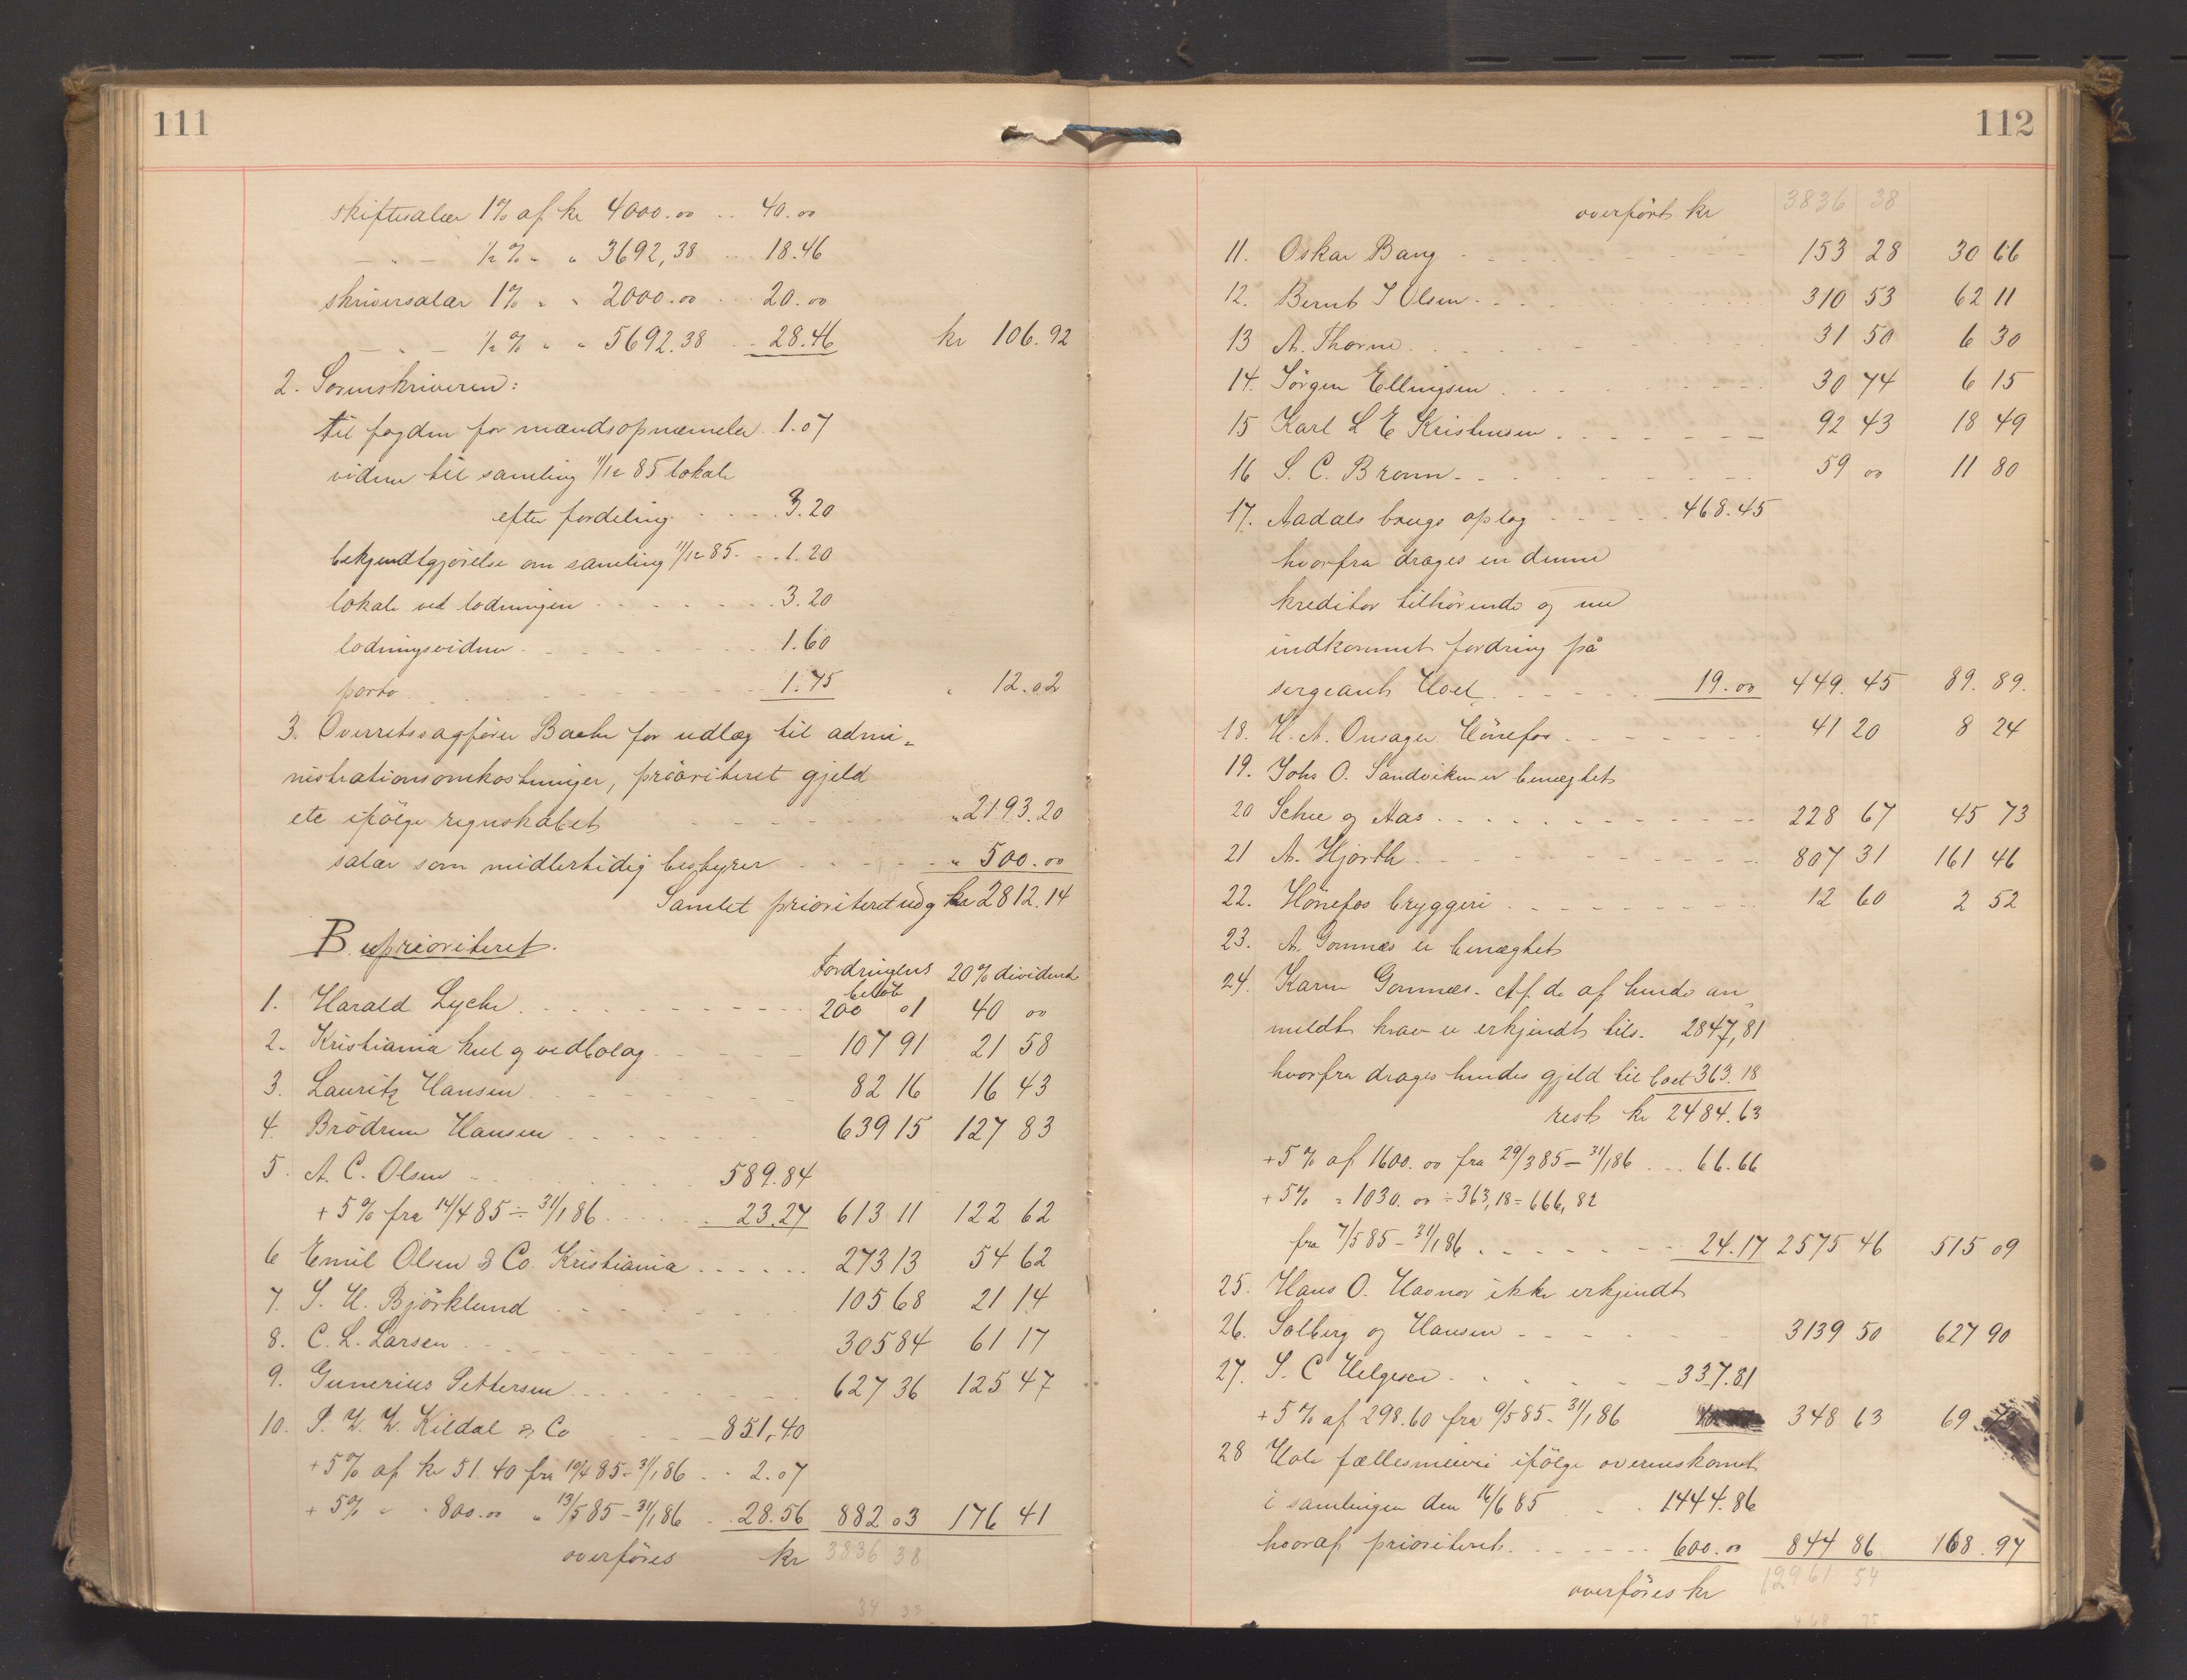 111
skiftesalær 1% af kr 4000.00 .. 40.00
— " — ½% " " 3692,38 .. 18.46
skriversalær 1% " " 2000.00 .. 20.00
— " — ½% " " 5692.38 .. 28.46 kr 106.92
2. Sorenskriveren:
til fogden for mandsopnævnelse 1.07
vidner til samling 11/12 85 lokale
efter fordeling .... 3.20
bekjendtgjørelse om samling 11/12 85 .. 1.20
lokale ved lodningen ...... 3.20
lodningsvidner ...... 1.60
porto ...... 1.75 " 12.02
3. Overretssagfører Bache for udlæg til admi=
nistrationsomkostninger, prioriteret gjæld
etc ifölge regnskabet " 2193.20
salær som midlertidig bestyrer " 500.00
Samlet prioriteret udg kr 2812.14
B. uprioriteret.
Fordringens beløb 20% dividende
1. Harald Lyche 200 01 40 00
2. Kristiania kul og vedbolag 107 91 21 58
3. Lauritz Hansen 82 16 16 43
4. Brödrene Hansen 639 15 127 83
5. A. C. Olsen 589.84
+ 5% fra 14/4 85 ÷ 31/1 86 23.27 613 11 122 62
6 Emil Olsen & Co. Kristiania 273 13 54 62
7. S. H. Björklund 105 68 21 14
8. C. L. Larsen 305 84 61 17
9. Gunerius Pettersen 627 36 125 47
10. P. W. W. Kildal & Co 851,40
+ 5% af kr 51.40 fra 10/4 85 - 31/1 86 .. 2.07
+ 5% " " 800.00 " 13/5 85 - 31/1 86 28.56 882 03 176 41
overføres kr 3836 38
34 33
112
overført kr 3836 38
11. Oskar Bang 153 28 30 66
12. Bernt I Olsen 310 53 62 11
13 A. Thorne 31 50 6 30
14. Jörgen Ellingsen 30 74 6 15
15 Karl L E Kristensen 92 43 18 49
16 S. C. Brown 59 00 11 80
17. Aadals brugs oplag 468.45
hvorfra drages en denne
kreditor tilhörende og nu
indkommet fordring på
sergeant Hoel 19.00 449.45 89.89.
18. H. A. Onsager Hönefos 41 20 8 24
19. Johs O. Sandviken er benægtet
20 Schee og Aas 228 67 45 73
21 A. Hjorth 807 31 161 46
22. Hönefos bryggeri 12 60 2 52
23. A. Gomnæs er benægtet
24. Karen Gomnæs. Af de af hende an
meldte krav er erkjendt tils. 2847,81
hvorfra drages hendes gjæld til boet 363.18
rest kr 2484.63
+ 5% af 1600.00 fra 29/3 85 - 31/1 86 ... 66.66
+ 5% " 1030.00 ÷ 363,18 = 666,82
fra 7/5 85 - 31/1 86 24.17 2575 46 515 09
25. Hans O. Havnor ikke erkjendt
26. Solberg og Hansen 3139 50 627 90
27. S. C Helgesen 337.81
+ 5% af 298.60 fra 9/5 85 - 31/1 86 348 63 69
28 Hole fællesmeieri ifölge overenskomst
i samlingen den 16/6 85 1444.86
hvoraf prioriteret 600.00 844 86 168.97
overføres kr 12961 54